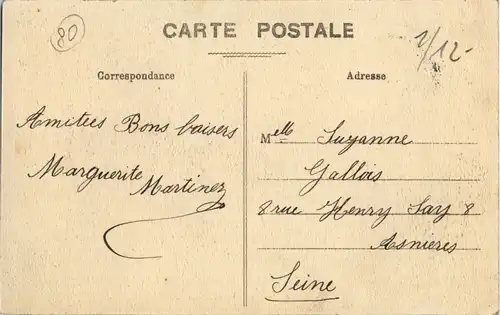 80
CARTE POSTALE
1/12-
Correspondance
Adresse
Amitees Bons baisers
Marguerite
Martinez
Melle Suzanne
Gallois
8 rue Henry Say 8
Asnieres
Seine